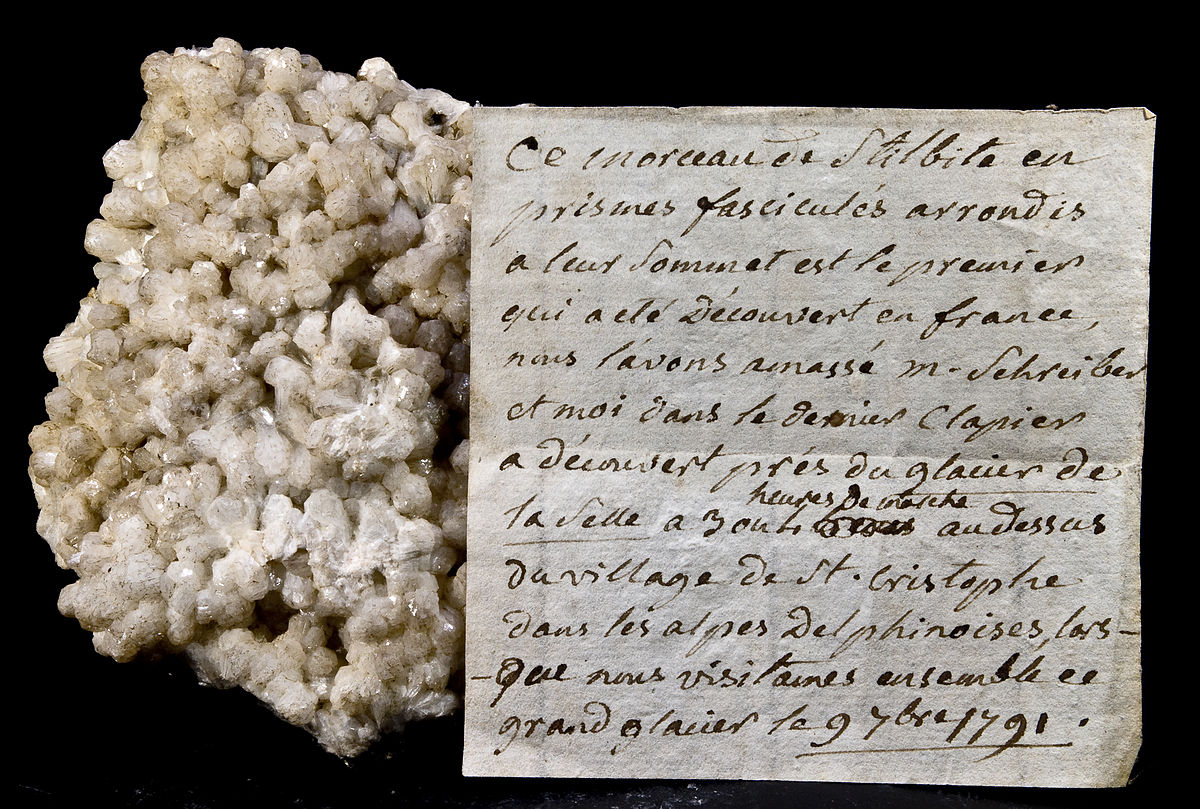 Ce morceau de Stilbite en
prismes fasciculés arrondis
a leur Sommet est le premier
qui a eté Découvert en france,
nous l'avons amassé m. Schreiber
et moi dans le dernier Clapier
a découvert prés du glacier de
heures De marche
la Selle a 3 ou 4 au dessus
Du village de St. Cristophe
dans les alpes Delphinoises, lors-
-que nous visitames ensemble ce
grand glacier le 9 7bre 1791.